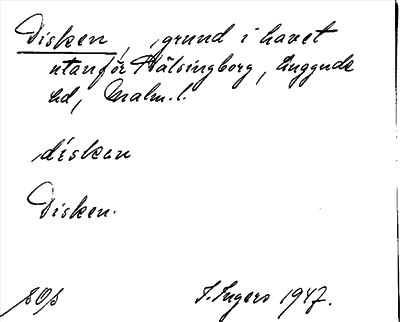 Disken, grund i havet
utanför Hälsingborg, Luggude
hd, Malm. l.
disken
Disken.
I. Ingers 1947.